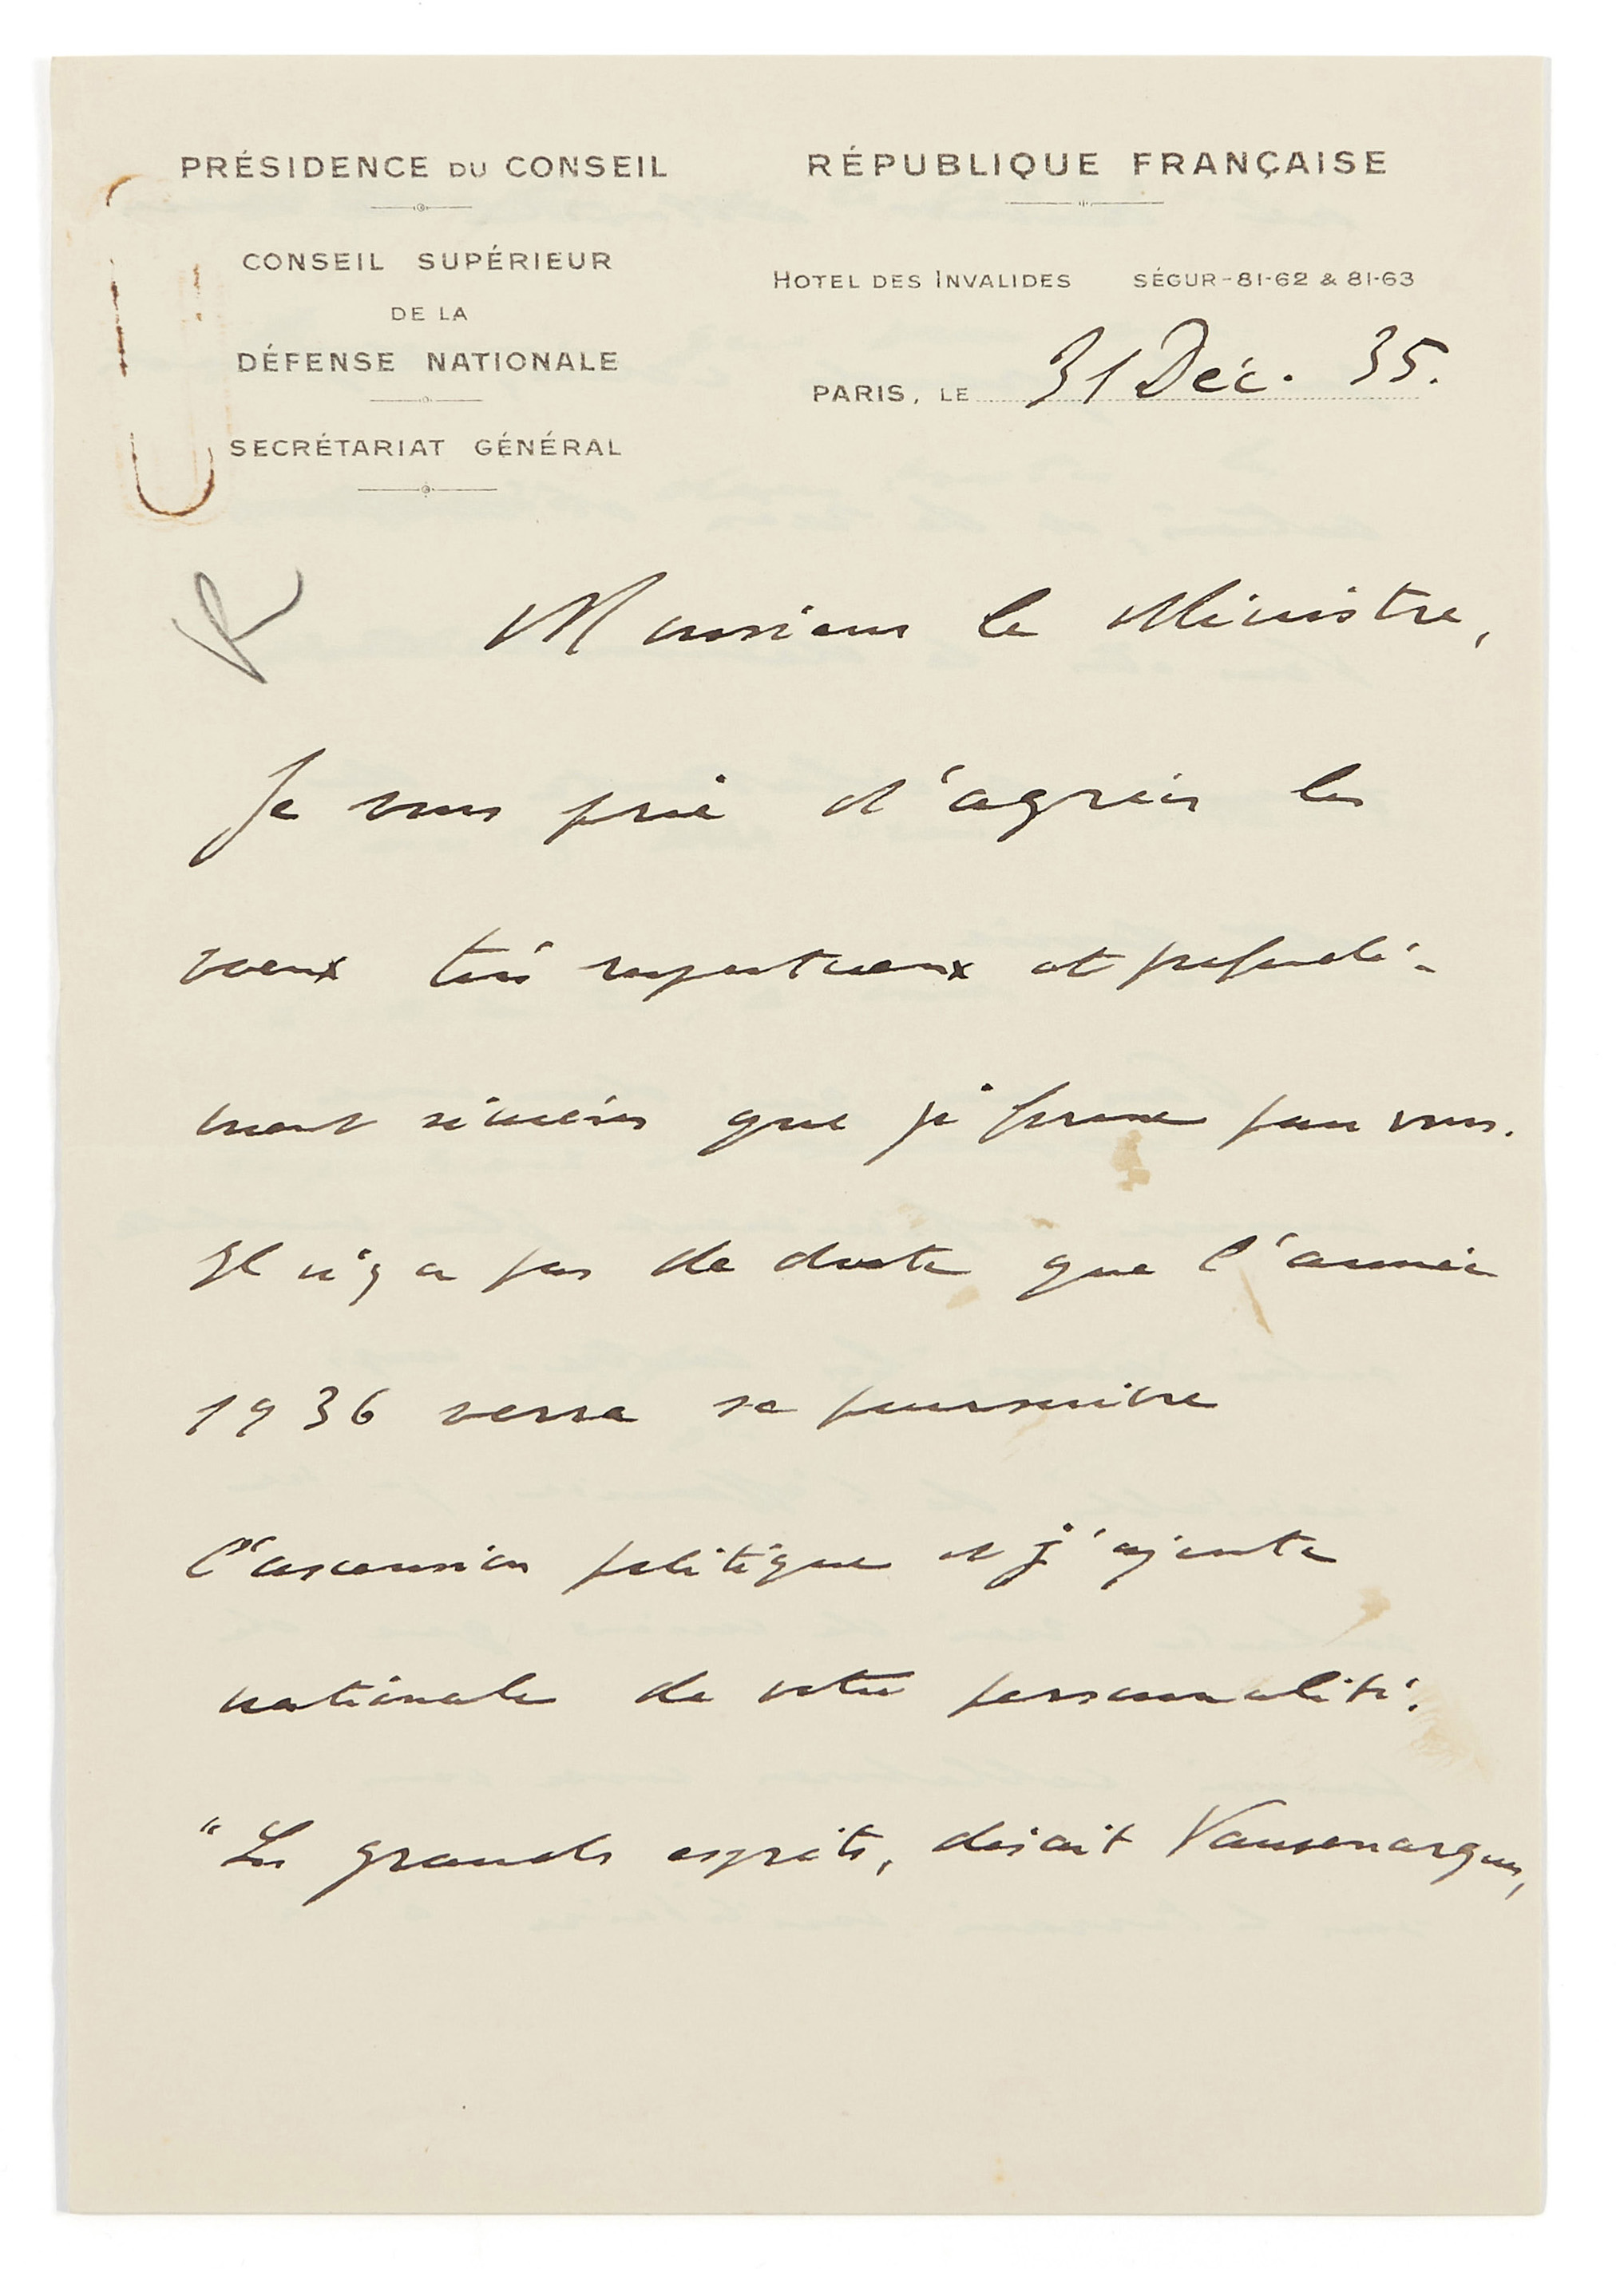 PRÉSIDENCE DU CONSEIL
CONSEIL SUPÉRIEUR
DE LA
DÉFENSE NATIONALE
SECRÉTARIAT GÉNÉRAL
RÉPUBLIQUE FRANÇAISE
HOTEL DES INVALIDES SÉGUR-81-62 & 81-63
PARIS, LE 31 Déc. 35.
R
Monsieur le Ministre,
Je vous prie d'agréer les
voeux très respectueux et profondé-
ment sincères que je forme pour vous.
Il n'y a pas de doute que l'année
1936 verra se poursuivre
l'ascension politique et j'ajoute
nationale de votre personnalité.
"Les grands esprits, disait Vauvenargues,